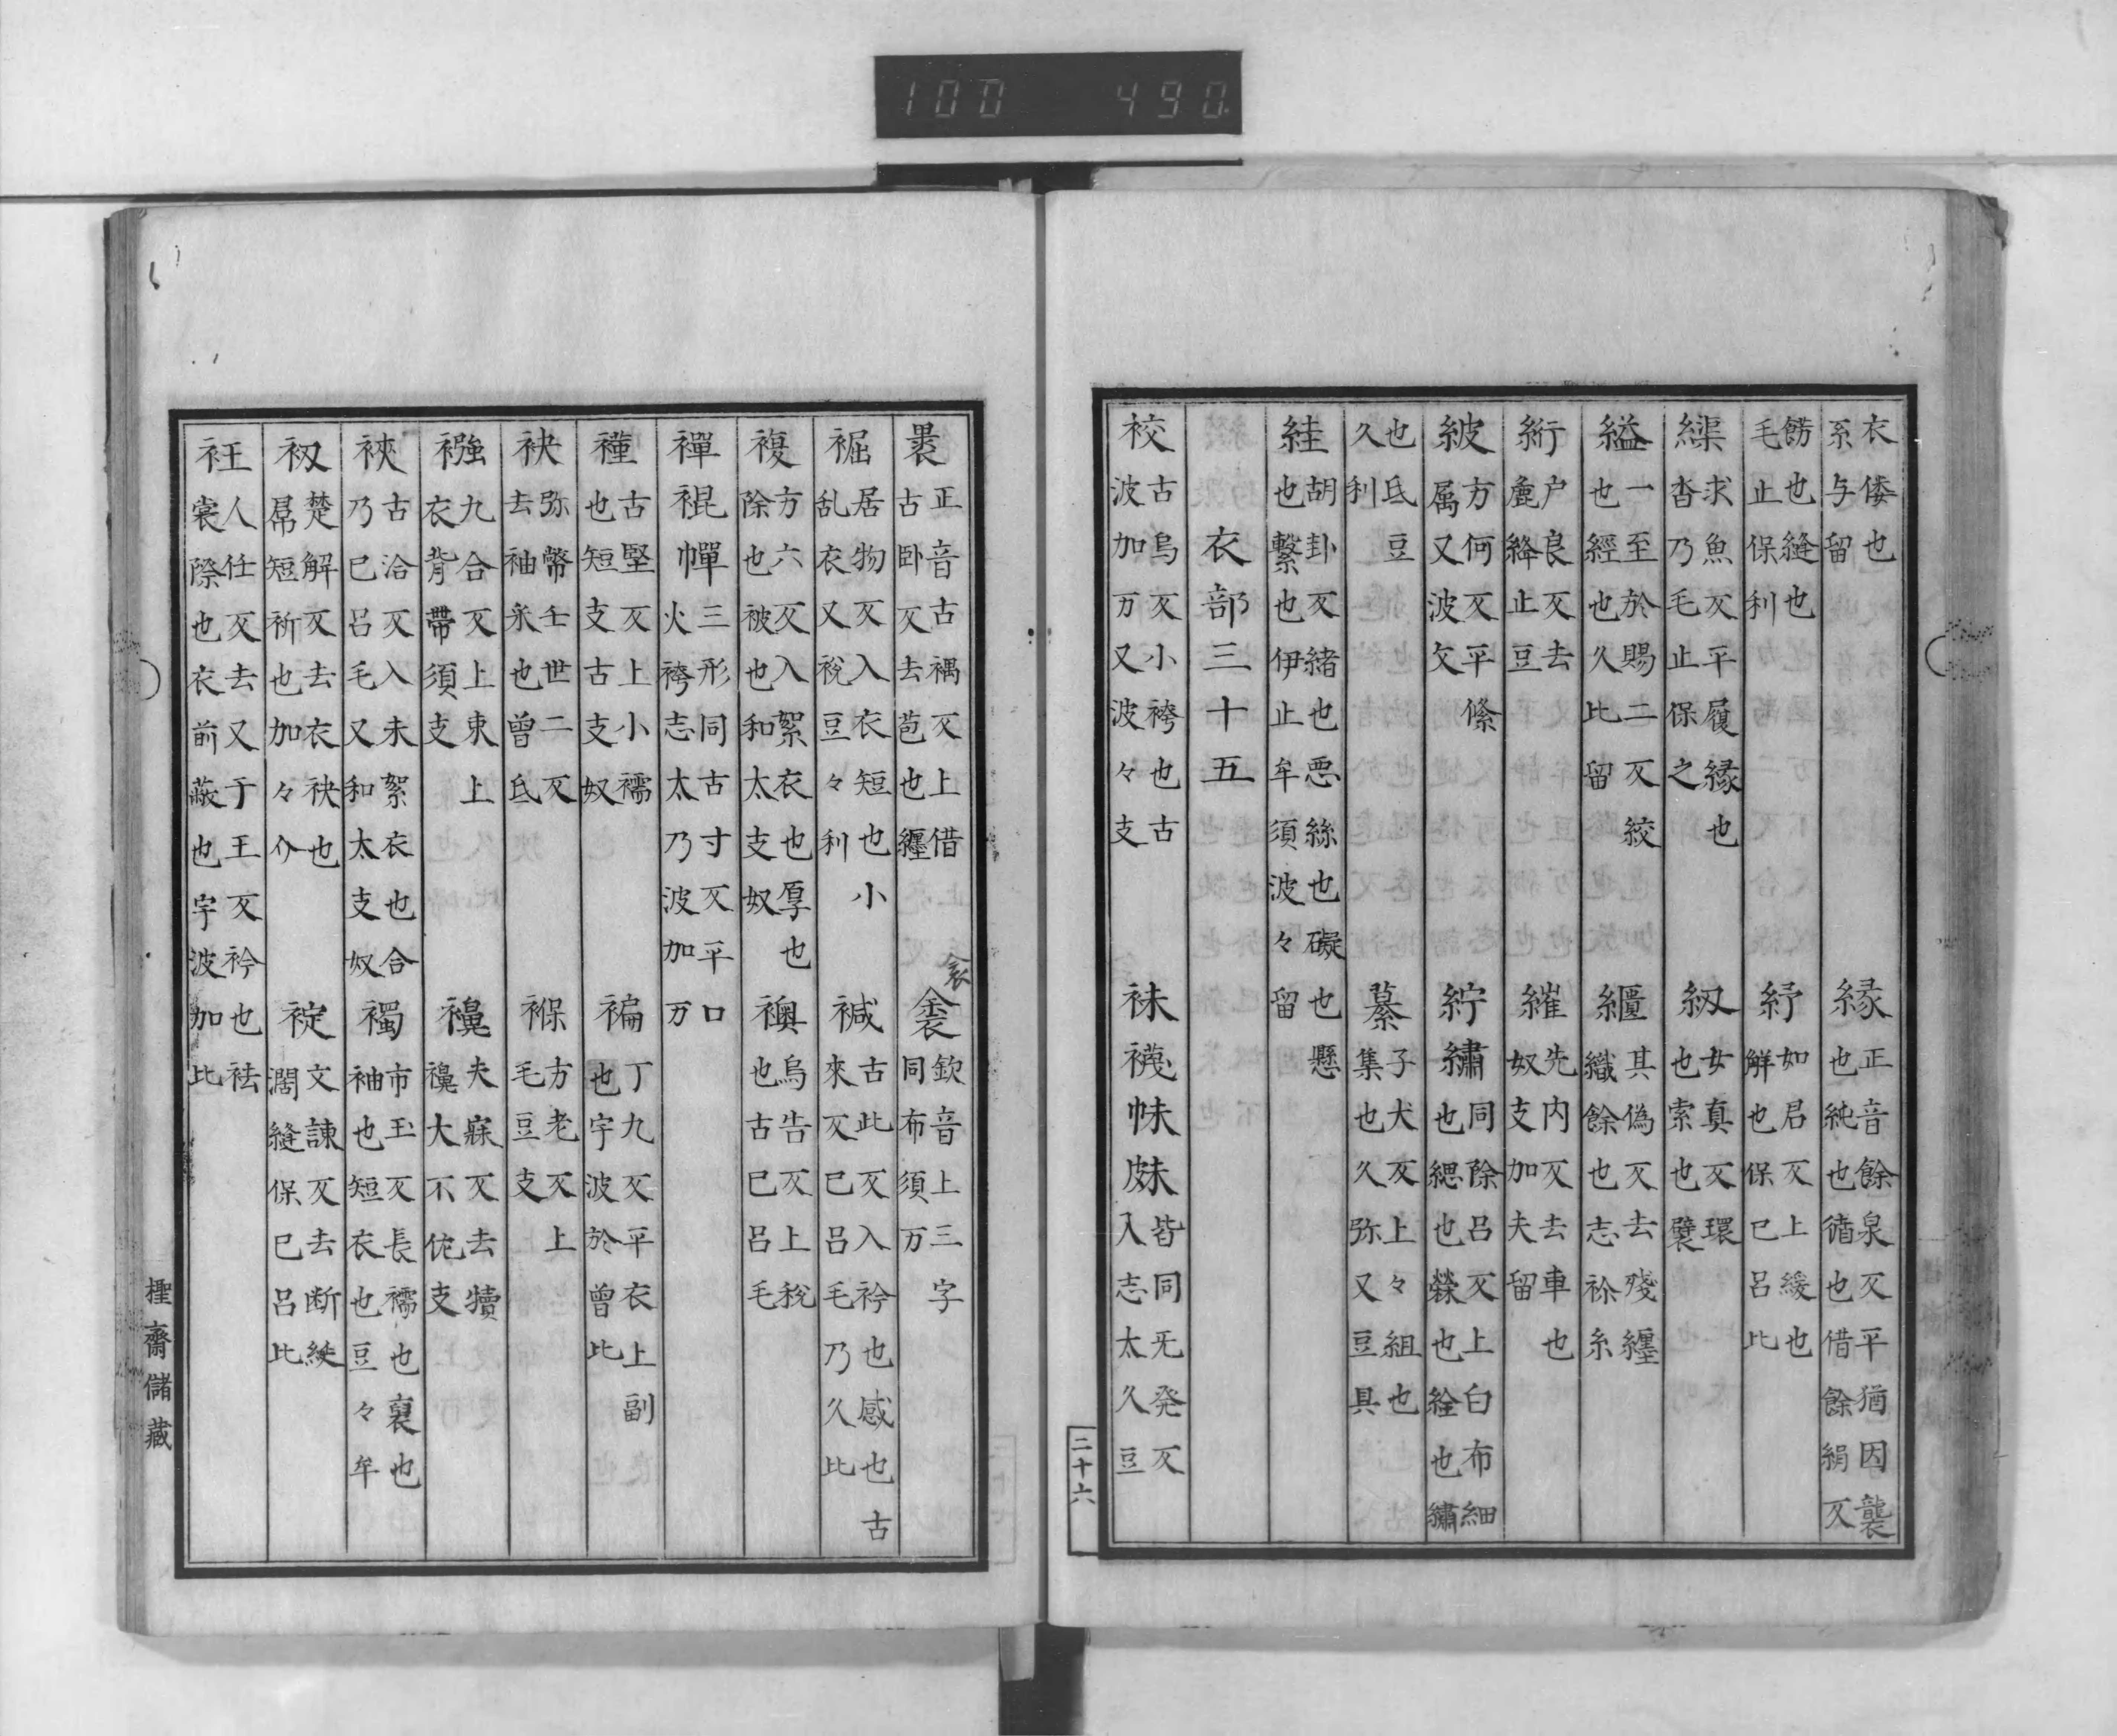 衣倭也
系与留
縁 正音餘泉反平猶因襲
也純也循也借餘絹反
餝也縫也
毛止保利
紓 如君反上緩也
解也保己呂比
求魚反平履縁也
沓乃毛止保之
紉 女真反環
也索也襞
縊 一至於賜二反絞
也經也久比留
其偽反去殘纒
織餘也志祢糸
絎 户良反去
麁絳止豆
繀 先内反去車也
奴支加夫留
紴 方何反平絛
属又波攵
紵繡 同除呂反上白布細
也緦也也絟也繡
也氐豆
久利
綦 子犬反上々組也
集也久弥又豆具
絓 胡卦反緒也悪絲也礙也懸
也繋也伊止牟須波々留
衣部三十五
古烏反小袴也古
波加万又波々支
袜襪帓 皆同旡発反
入志太久豆
褁 正音古禍反上借
古卧反去苞也纒
衾
欽音上三字
同布須万
居物反入衣短也小
乱衣又祱豆々利
古此反入衿也感也古
來反己呂毛乃久比
複 方六反入絮衣也厚也
除也被也和太支奴
襖 烏告反上祱
也古己呂毛
襌裩幝 三形同古寸反平口
火袴志太乃波加万
古堅反上小襦
也短支古支奴
褊 丁九反平衣上副
也宇波於曾比
袂 弥幣壬世二反
去袖末也曾氐
褓 方老反上
毛豆支
襁 九合反上束上
衣背帶須支
夫寐反去犢
大不佐支
裌 古洽反入未絮衣也合
乃己呂毛又和太支奴
襡 市玉反長襦也裏也
袖也短衣也豆々牟
衩 楚解反去衣袂也
屌短祈也加々介
䘺 文諫反去断絶
濶縫保己呂比
衽 人任反去又于王反衿也袪
裳際也衣前蔽也宇波加比
二十六
樫齋儲藏
100 490